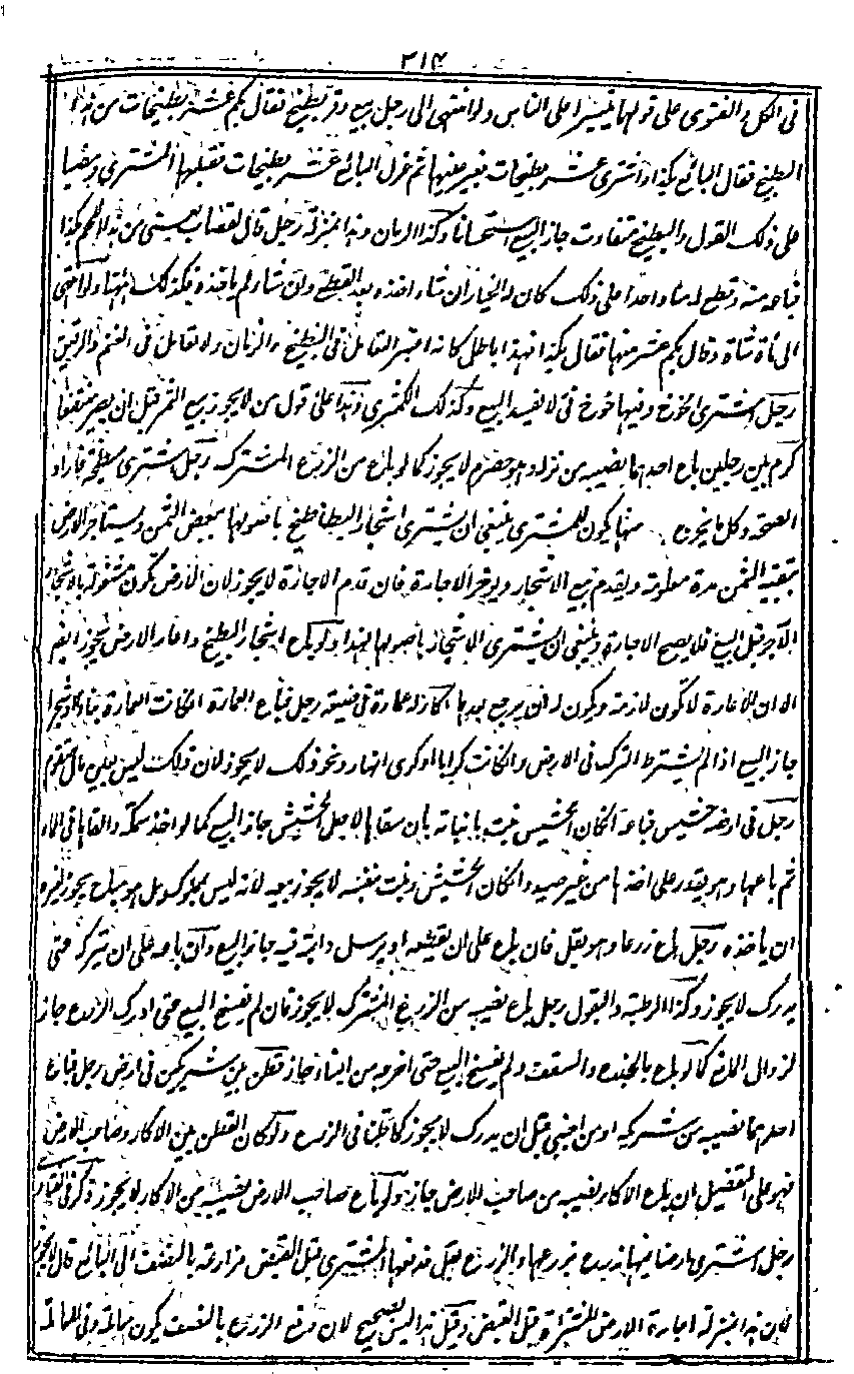 ٢١٤
فى الكل والفتوى على قولهما تيسيرا على الناس ولو انتهى الى رجل يبيع وقر بطيخ فقال بكم عشر بطيخات من هذا
البطيخ فقال البائع بكذا واشترى عشر بطيخات بغير عينها ثم عزل البائع عشر بطيخات فقبلها المشترى ومضيا
على ذلك القول والبطيخ متفاوت جاز البيع استحسانا وكذا الرمان وهذا بمنزلة رجل قال لقصاب بعنى من هذا اللحم كذا
فباعه منه وقطع له منا واحدا على ذلك كان له الخيار ان شاء اخذه بعد القطع وان شاء لم ياخذه فكذلك ههنا ولو انتهى
الى مأة شاة وقال بكم عشر منها فقال بكذا فهذا باطل كانه اعتبر التعامل فى البطيخ والرمان ولا تعامل فى الغنم والرقيق
رجل اشترى الخوخ وفيها خوخ فى لا يفسد البيع وكذلك الكمثرى وهذا على قول من لا يجوز بيع الثمر قبل ان يصير منتفعا
كرم بين رجلين باع احدهما نصيبه من نزله وهو حصرم لا يجوز كما لو باع من الزرع المشترك رجل اشترى مبطخة فاراد
الصحة وكل ما يخرج منها يكون للمشترى ينبغى ان يشترى اشجار البطاطيخ باصولها ببعض الثمن ويستاجر الارض
ببقية الثمن مدة معلومة ويقدم بيع الاشجار ويؤخر الاجارة فان قدم الاجارة لا يجوز لان الارض تكون مشغولة باشجار
الآجر قبل البيع فلا يصح الاجارة وينبغى ان يشترى الاشجار باصولها لهذا ولو باع اشجار البطيخ واعار الارض يجوز ايضا
الا ان الاعارة لا تكون لازمة ويكون له ان يرجع بعدها اكار له عمارة فى ضيعة رجل فباع العمارة ان كانت العمارة بناء او شجرا
جاز البيع اذا لم يشترط الترك فى الارض وان كانت كرابا او كرى انهار ونحو ذلك لا يجوز لان ذلك ليس بعين مال متقوم
رجل فى ارضه حشيش فباعه ان كان الحشيش نبت بانباته بان سقاها لاجل الحشيش جاز البيع كما لو اخذ سمكة والقاها فى الماء
ثم باعها وهو يقدر على اخذها من غير صيد وان كان الحشيش نبت بنفسه لا يجوز بيعه لانه ليس بمملوك بل هو مباح يجوز لغيره
ان ياخذه رجل باع زرعا وهو بقل فان باع على ان يقطعه او يرسل دابته فيه جاز البيع وان باعه على ان يتركه حتى
يدرك لا يجوز وكذا الرطبة والبقول رجل باع نصيبه من الزرع المشترك لا يجوز فان لم يفسخ البيع حتى ادرك الزرع جاز
لزوال المانع كما لو باع الجذع والسقف ولم يفسخ البيع حتى اخرجه من البناء جاز قطن بين شريكين فى ارض رجل فباع
احدهما نصيبه من شريكه او من اجنبى قبل ان يدرك لا يجوز كما قلنا فى الزرع ولو كان القطن بين الاكار وصاحب الارض
فهو على التفصيل ان باع الاكار نصيبه من صاحب الارض جاز ولو باع صاحب الارض نصيبه من الاكار لا يجوز ذكر فى
رجل اشترى ارضا فيها زرع بزرعها والزرع بقل فدفعها المشترى قبل القبض مزارعة بالنصف الى البائع قال لا يجوز
لان هذا بمنزلة اجارة الارض المشتراة قبل القبض وقيل هذا ليس بصحيح لان دفع الزرع بالنصف يكون معاملة وفى المعاملة